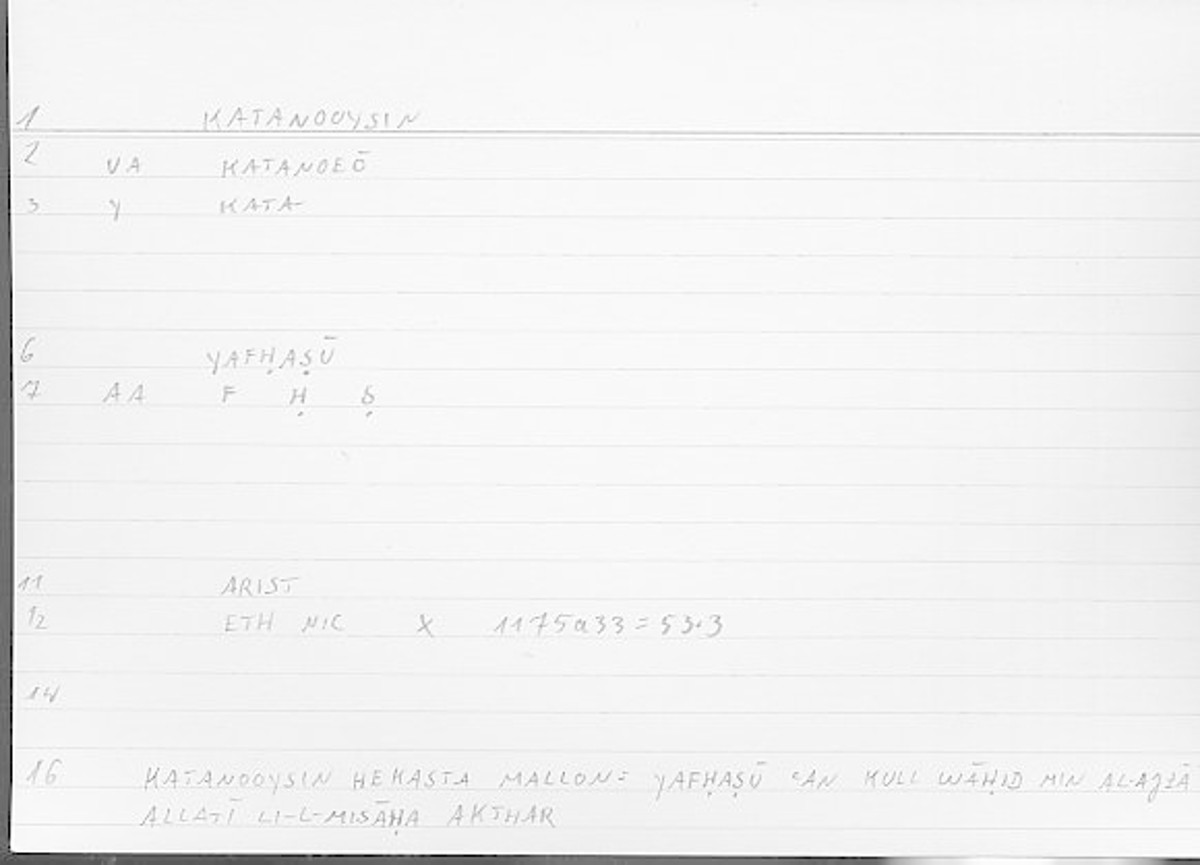 1 KATANOOYSIN
2 VA KATANOEŌ
3 Y KATA
6 YAFḤAṢŪ
7 AA F Ḥ Ṣ
11 ARIST
12 ETH NIC X 1175a33 = 53.3
14
16 KATANOOYSIN HEKASTA MALLON = YAFḤAṢŪ ʿAN KULL WĀḤID MIN AL-AJZĀ
ALLATĪ LI-L-MISĀḤA AKTHAR